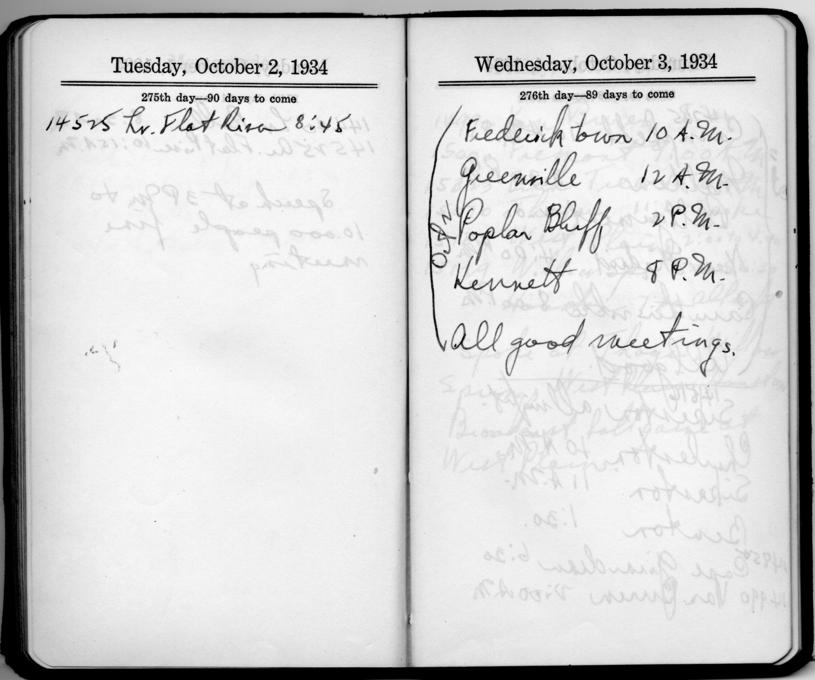 Tuesday, October 2, 1934
275th day—90 days to come
14525 Lv. Flat River 8:45
Wednesday, October 3, 1934
276th day—89 days to come
Fredericktown 10 A.M.
Greenville 12 A.M.
Poplar Bluff 2 P.M.
Kennett 8 P.M.
All good meetings.